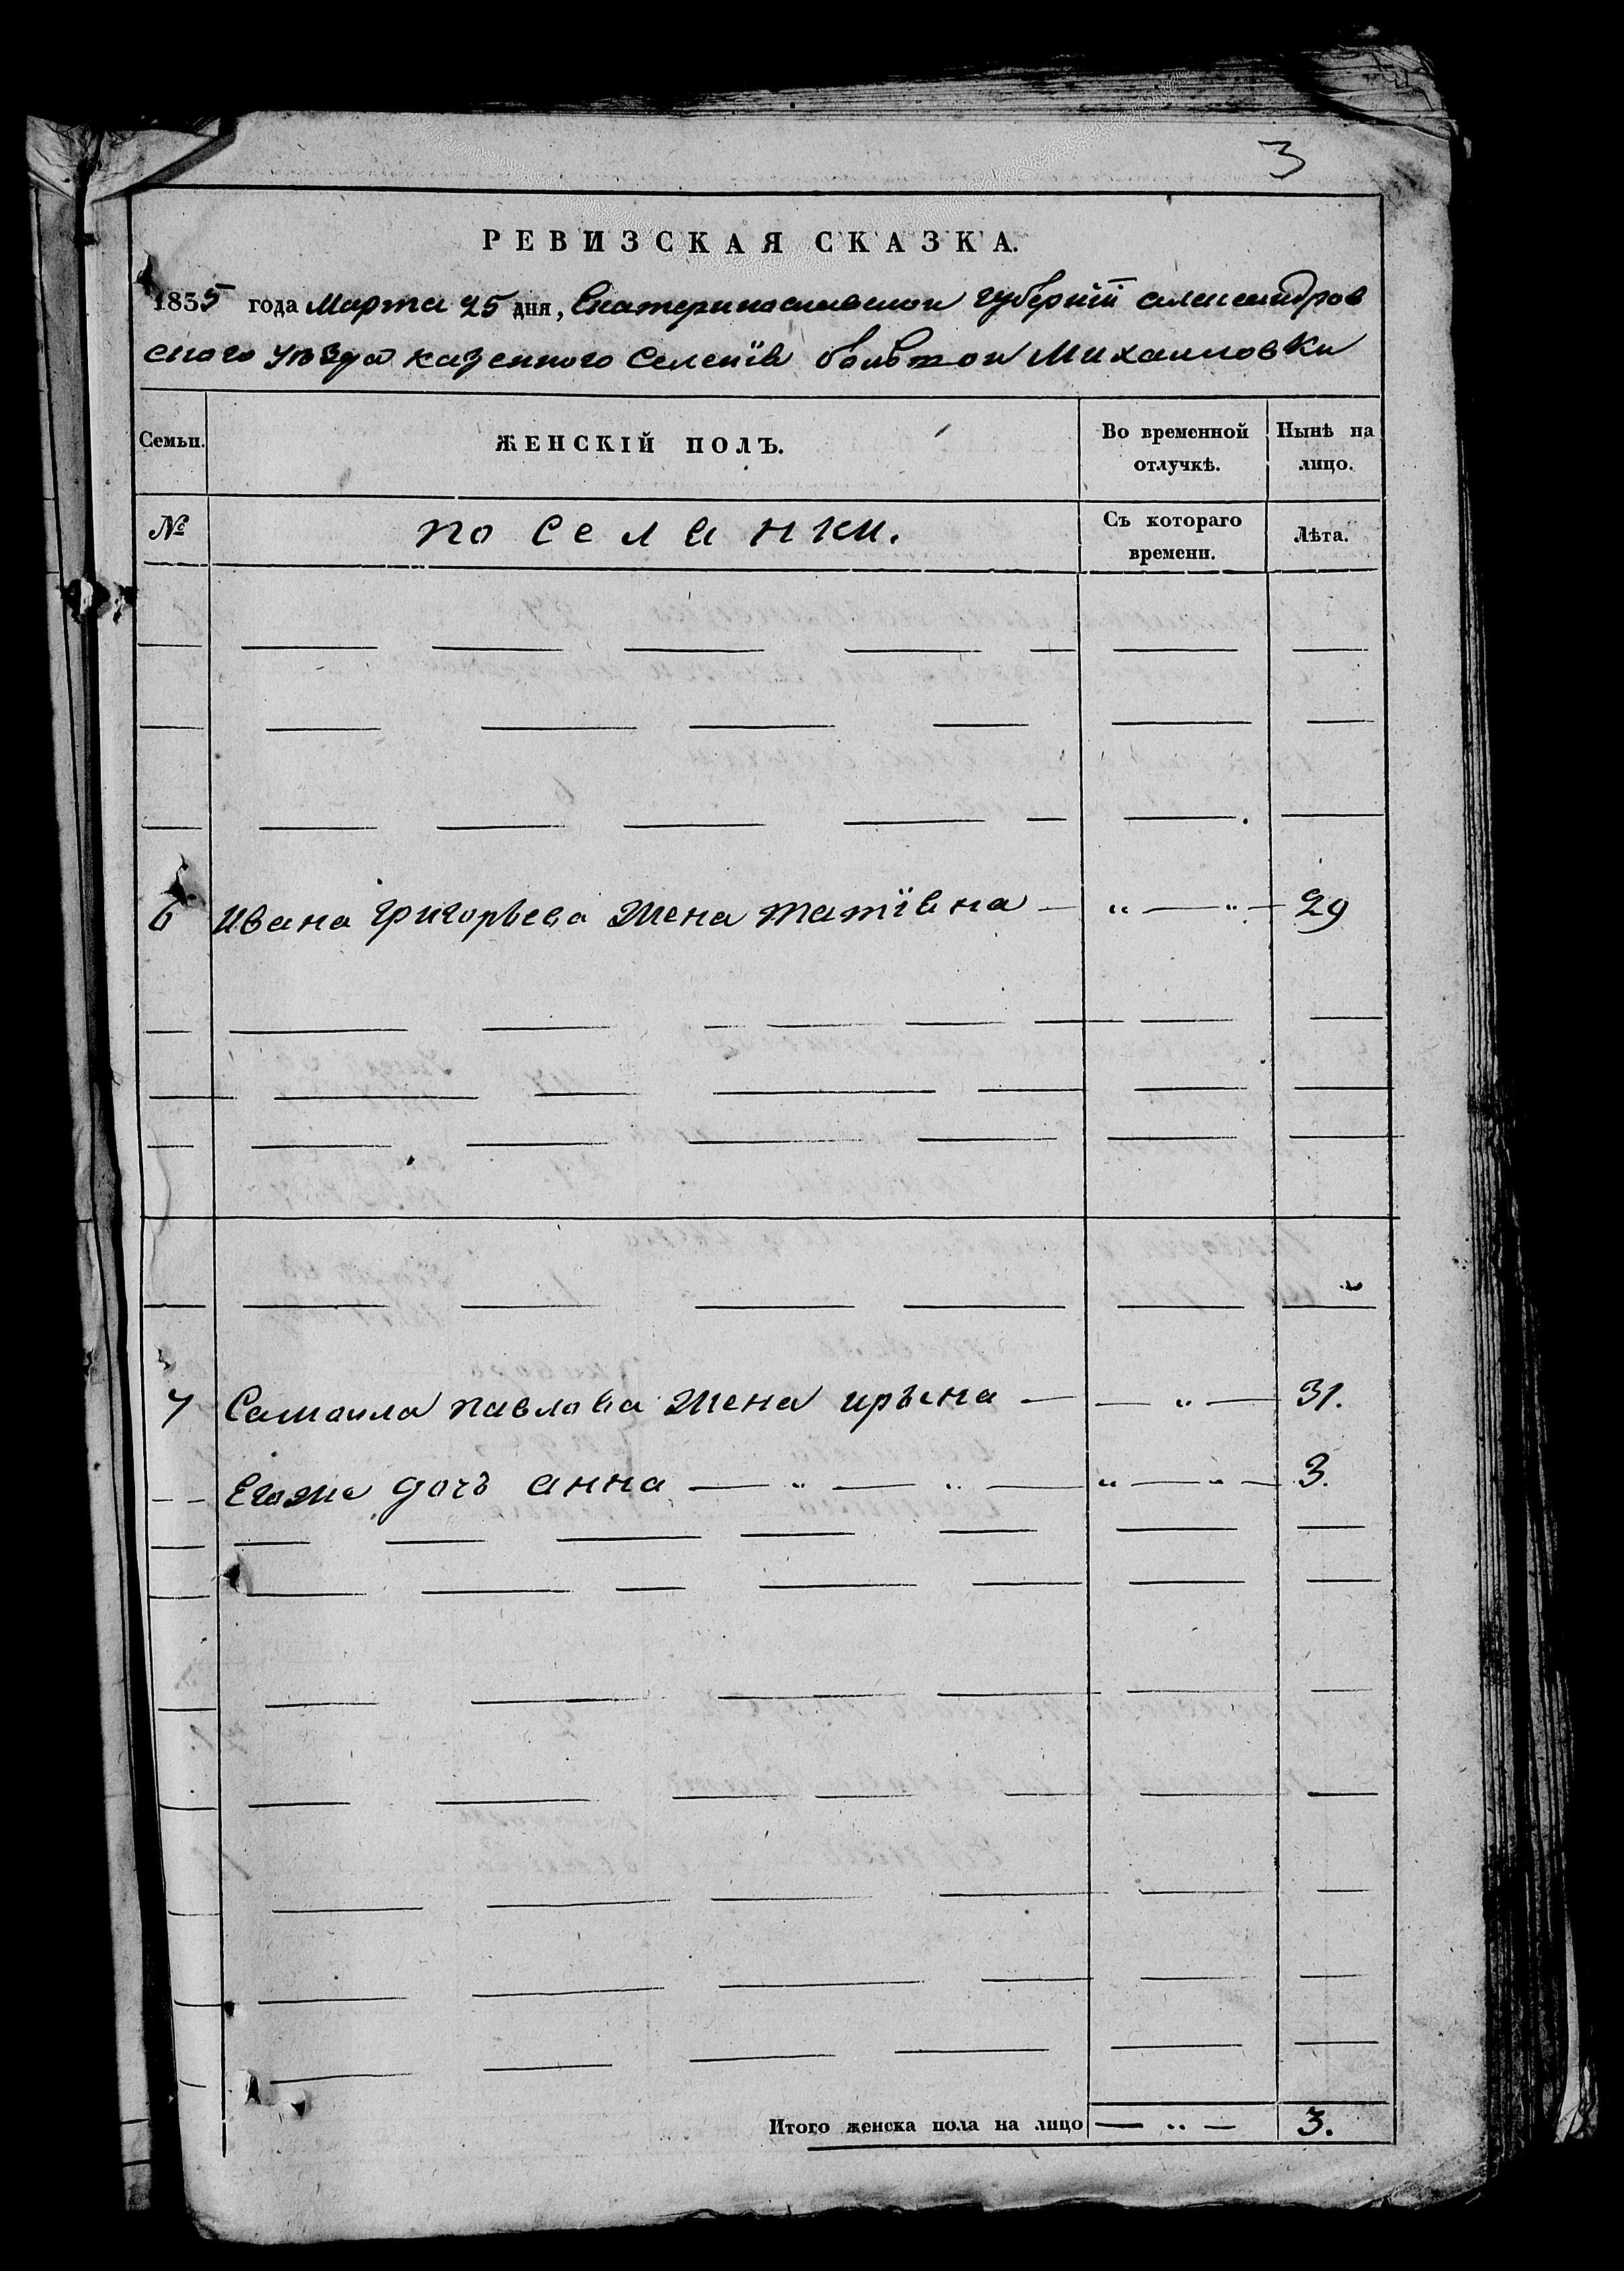 3
РЕВИЗСКАЯ СКАЗКА.
1835 года Марта 25 дня, Екатеринославской губерніи александров
ского уѣзда казенного Селенія большой Михайловки
Семьи. ЖЕНСКІЙ ПОЛЪ. Во временной отлучкѣ. Нынѣ на лицо.
№ поселянки. Съ котораго времени. Лѣта.
6 Ивана Григорьева жена татіяна — „ — „ — 29
7 Самоила павлова жена ирына — — „ — 31.
— — Егоже дочь анна — „ — „ — „ — „ — 3.
Итого женска пола на лицо — „ — 3.